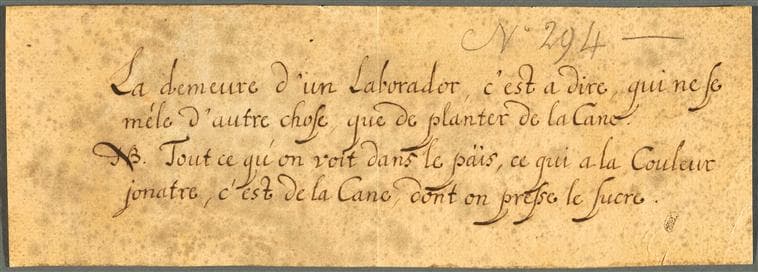 N° 294 —
La demeure d'un Laborador, c'est a dire, qui ne se
méle d'autre chose, que de planter de la Cane.
NB. Tout ce qu'on voit dans le päis, ce qui a la Couleur
jonatre, c'est de la Cane, dont on presse le sucre.